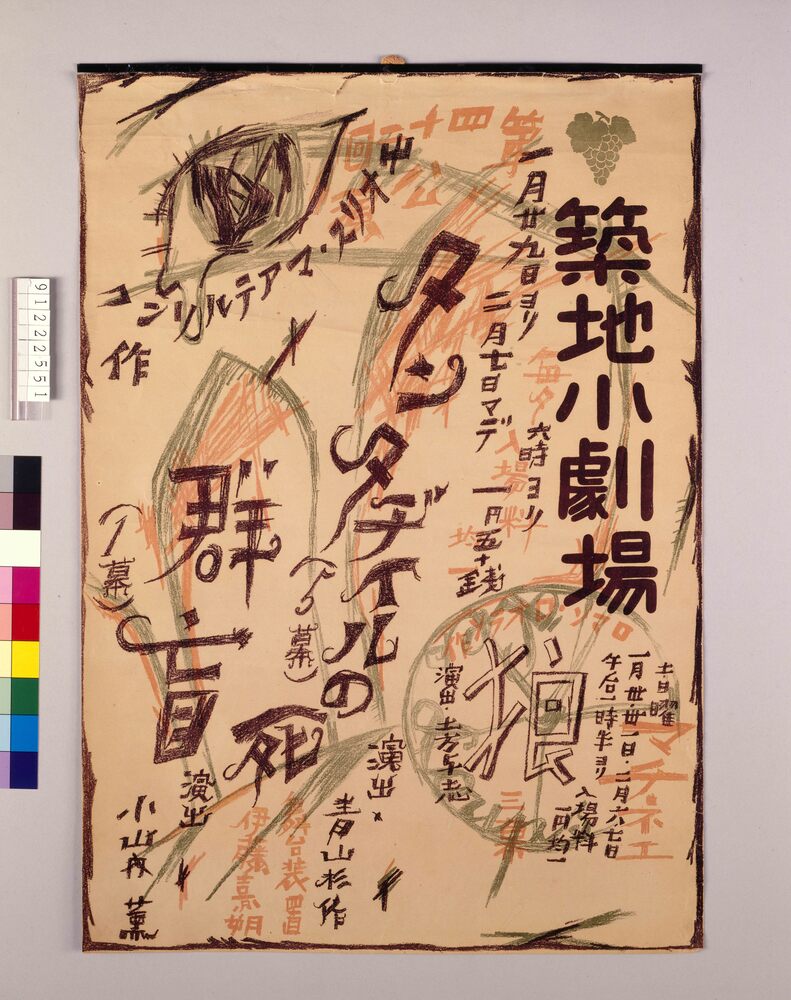 築地小劇場
一月廿九日ヨリ
二月七日マデ
毎夕六時ヨリ
入場料均一
一円五十銭
土日曜
マチネエ
一月卅・卅一日・二月六七日
午后一時半ヨリ
入場料
一円均一
ロマン・ロラン作
狼
三幕
演出・土方与志
モオリス・マアテルリンク
作
タンタヂイルの死
(5幕)
演出
青山杉作
群盲
(1幕)
演出
小山内薫
舞台装置
伊藤熹朔
9122251